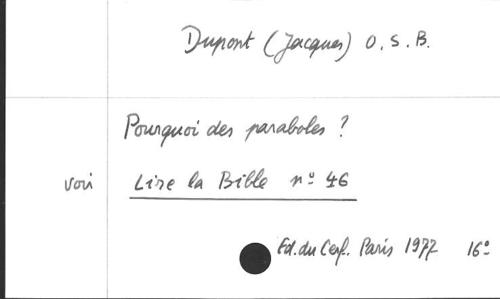 Dupont (Jacques) O.S.B.
Pourquoi des paraboles ?
voir Lire la Bible nº 46
Ed. du Cerf. Paris 1977 16º